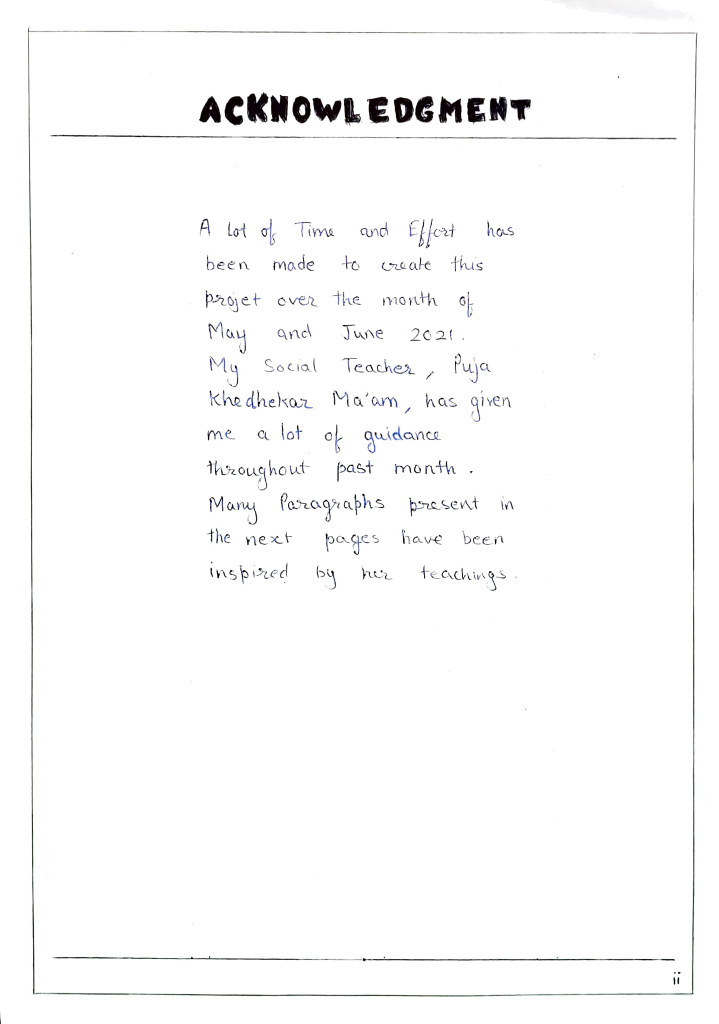 ACKNOWLEDGMENT
A Lot of Time and Effort has
been made to create this
projet over the month of
May and June 2021.
My Social Teacher, Puja
Khedhekar Ma'am, has given
me a lot of guidance
throughout past month.
Many Paragraphs present in
the next pages have been
inspired by her teachings.
ii